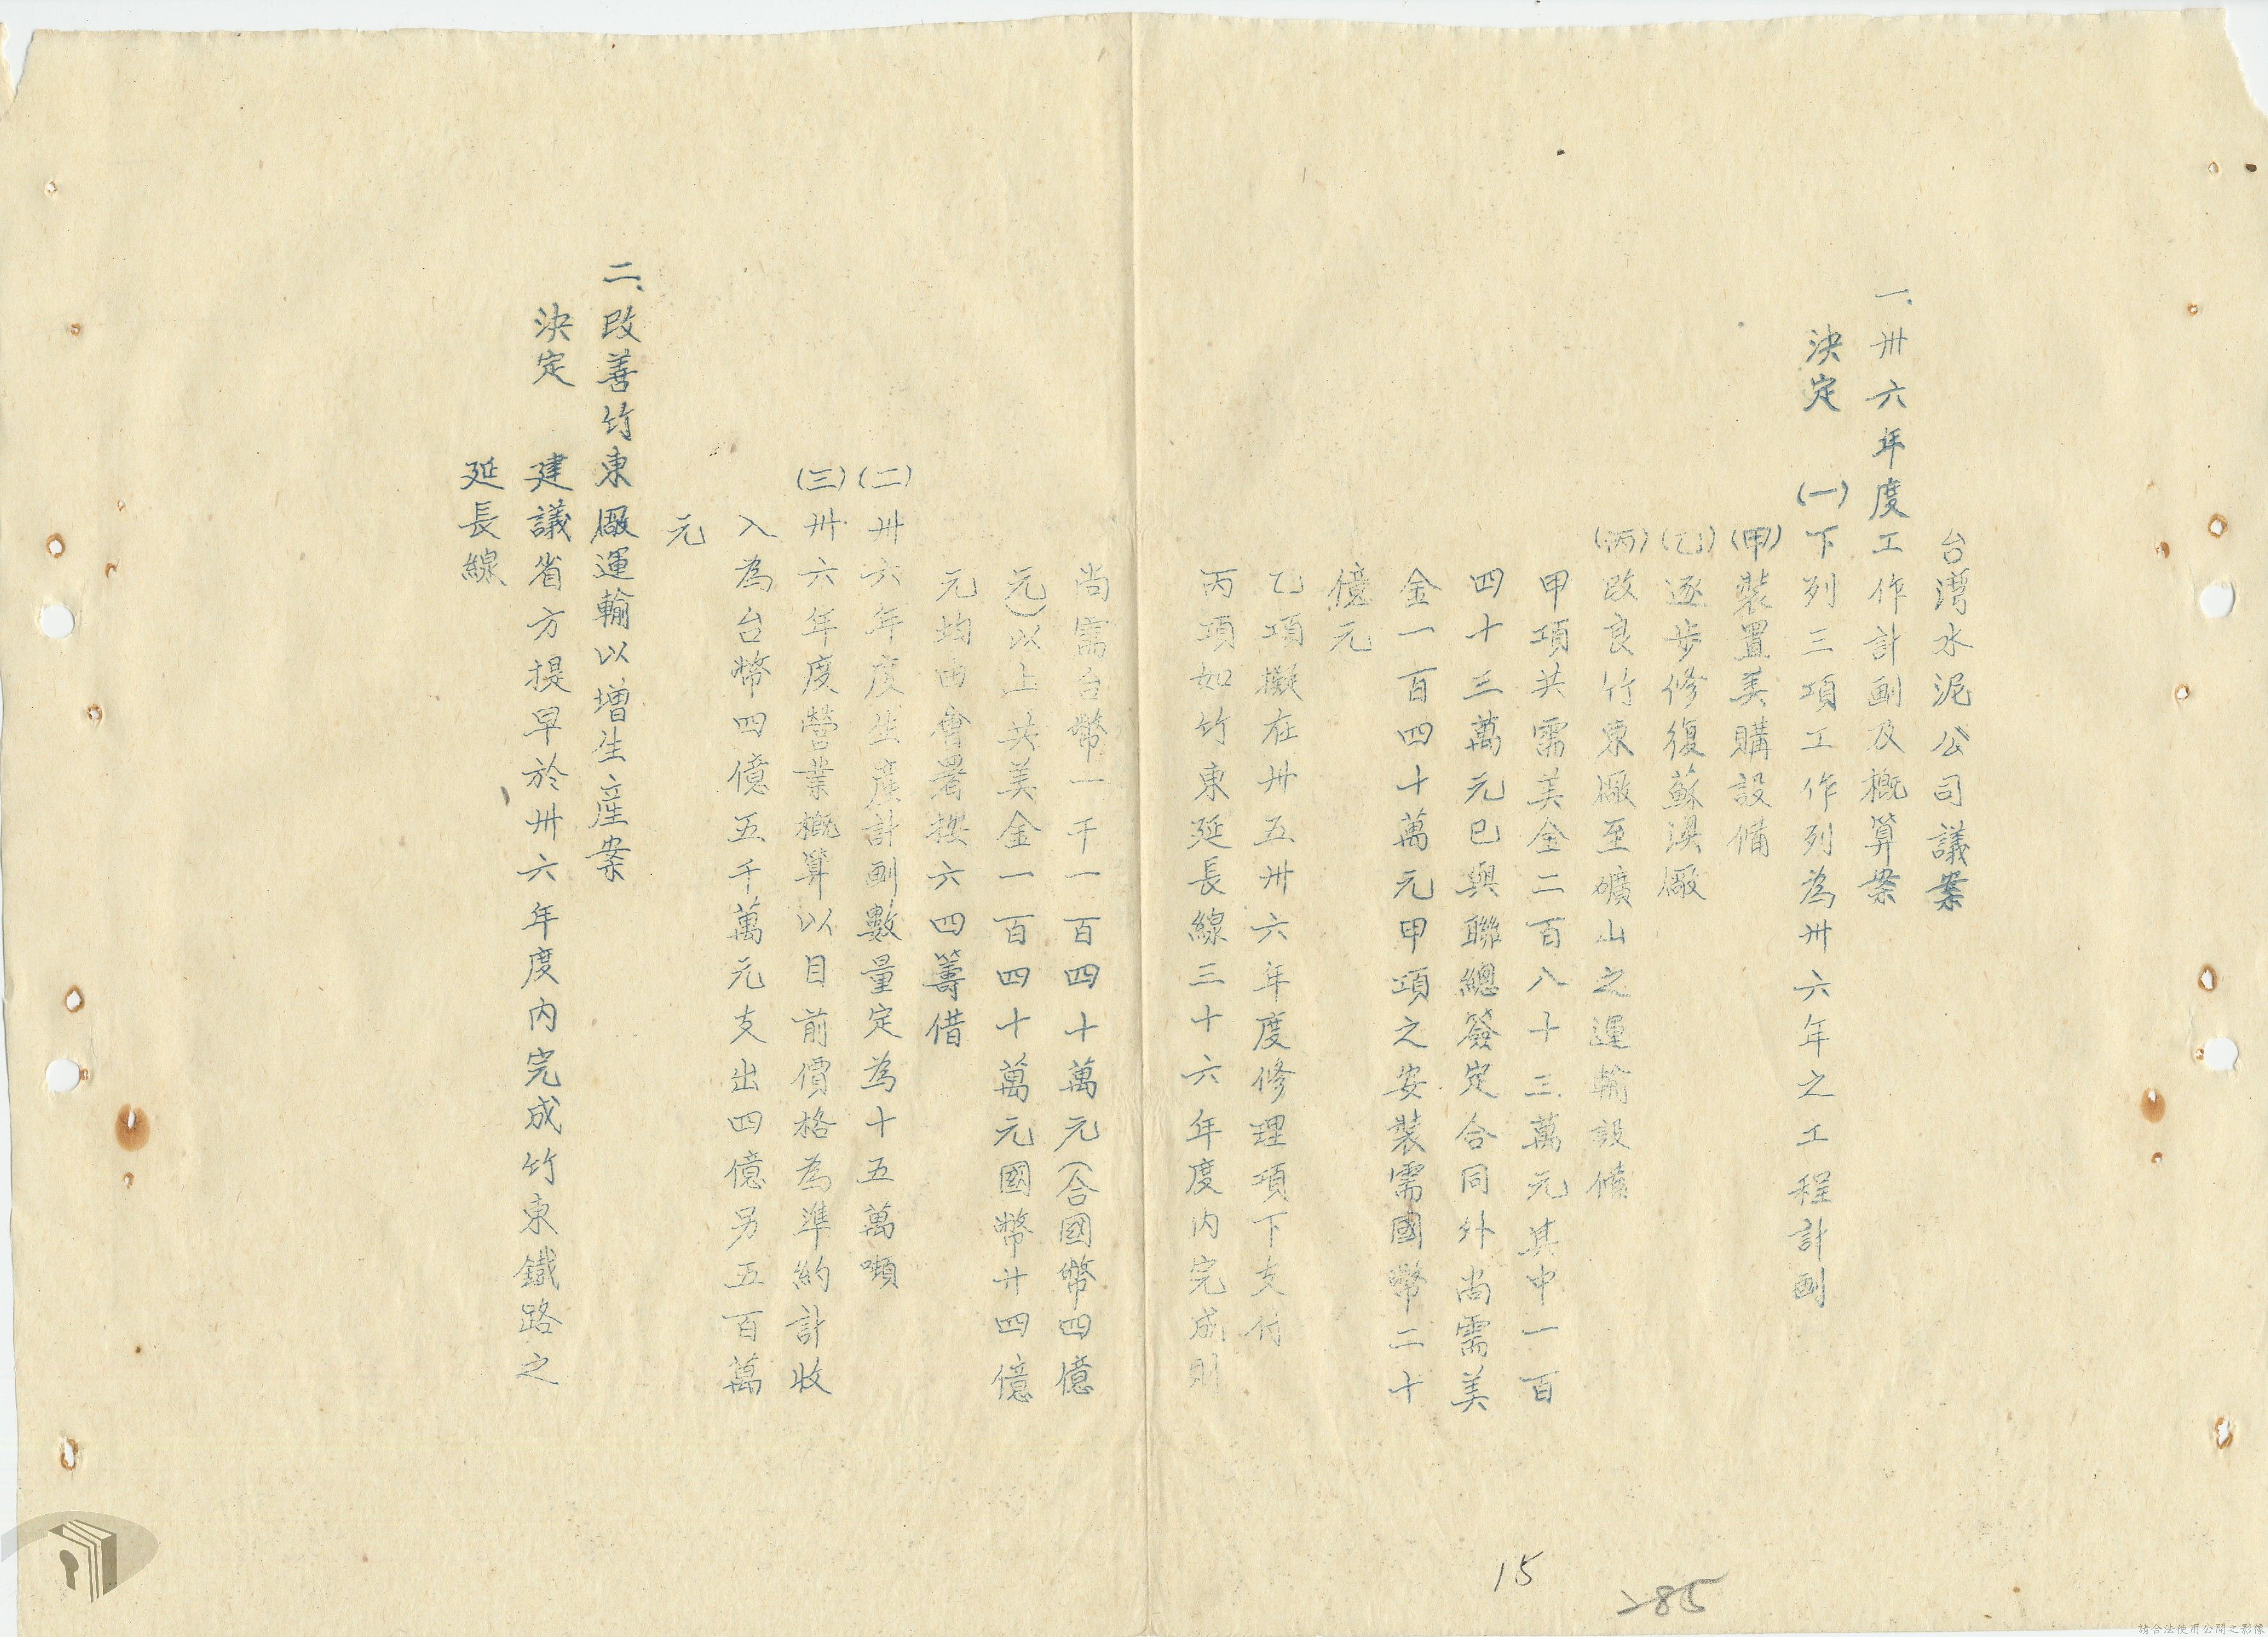 台灣水泥公司議案
一、卅六年度工作計劃及概算案
決定 (一)下列三項工作列為卅六年之工程計劃
(甲)裝置美購設備
(乙)逐步修復蘇澳廠
(丙)改良竹東廠至礦山之運輸設備
甲項共需美金二百八十三萬元其中一百
四十三萬元已與聯總簽定合同外尚需美
金一百四十萬元甲項之安裝需國幣二十
億元
乙項擬在卅五卅六年度修理項下支付
丙項如竹東延長線三十六年度內完成則
尚需台幣一千一百四十萬元(合國幣四億
元)以上共美金一百四十萬元國幣廿四億
元均由會署按六四籌借
(二)卅六年度生產計劃數量定為十五萬噸
(三)卅六年度營業概算以目前價格為準約計收
入為台幣四億五千萬元支出四億另五百萬
元
二、改善竹東廠運輸以增生產案
決定 建議省方提早於卅六年度內完成竹東鐵路之
延長線
15
285
請合法使用公開之影像